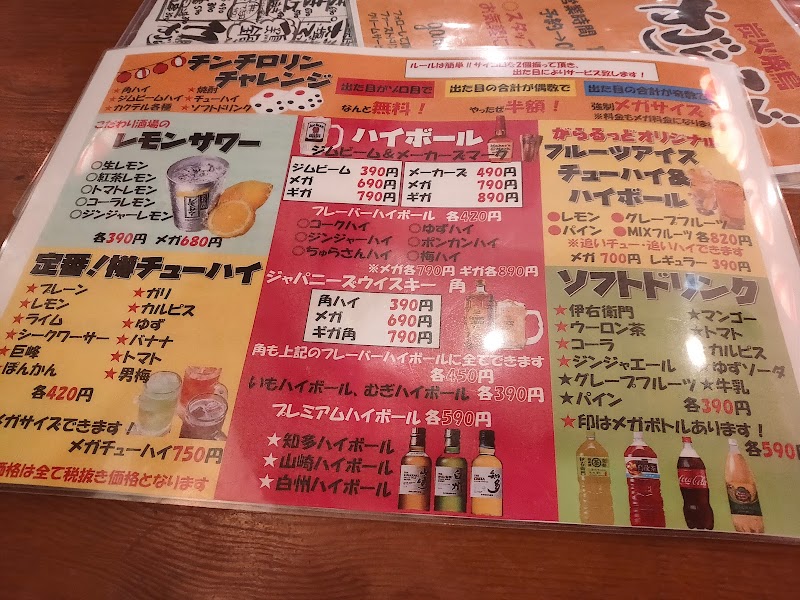 チンチロリン
チャレンジ
★角ハイ ★焼酎
★ジムビームハイ ★チューハイ
★カクテル各種 ★ソフトドリンク
ルールは簡単!!サイコロを2個振って頂き、
出た目によりサービス致します!
出た目がゾロ目で
なんと無料!
出た目の合計が偶数で
やったぜ 半額!
出た目の合計が奇数で
強制メガサイズ
※料金もメガ料金になりま
こだわり酒場の
レモンサワー
○生レモン
○紅茶レモン
○トマトレモン
○コーラレモン
○ジンジャーレモン
各390円 メガ680円
定番!樽チューハイ
★プレーン
★レモン
★ライム
★シークワーサー
★巨峰
ぽんかん
★ガリ
★カルピス
★ゆず
★バナナ
★トマト
★男梅
各420円
メガサイズできます!
メガチューハイ750円
価格は全て税抜き価格となります
ハイボール
ジムビーム&メーカーズマーク
ジムビーム 390円
メガ 690円
ギガ 790円
メーカーズ 490円
メガ 790円
ギガ 890円
フレーバーハイボール 各420円
○コークハイ ○ゆずハイ
○ジンジャーハイ ○ポンカンハイ
○ちゅらさんハイ ○梅ハイ
※メガ各790円 ギガ各890円
ジャパニーズウイスキー 角
角ハイ 390円
メガ 690円
ギガ角 790円
角も上記のフレーバーハイボールに全てできます
各450円
いもハイボール、むぎハイボール 各390円
プレミアムハイボール 各590円
★知多ハイボール
★山崎ハイボール
★白州ハイボール
がらるっどオリジナル
フルーツアイス
チューハイ&
ハイボール
●レモン ●グレープフルーツ
●パイン ●MIXフルーツ 各820円
※追いチュー・追いハイできます
メガ 700円 レギュラー 390円
ソフトドリンク
★伊右衛門
★ウーロン茶
★コーラ
★ジンジャエール
★グレープフルーツ
★パイン
★マンゴー
★トマト
カルピス
★ゆずソーダ
★牛乳
各390円
★印はメガボトルあります!
各590円